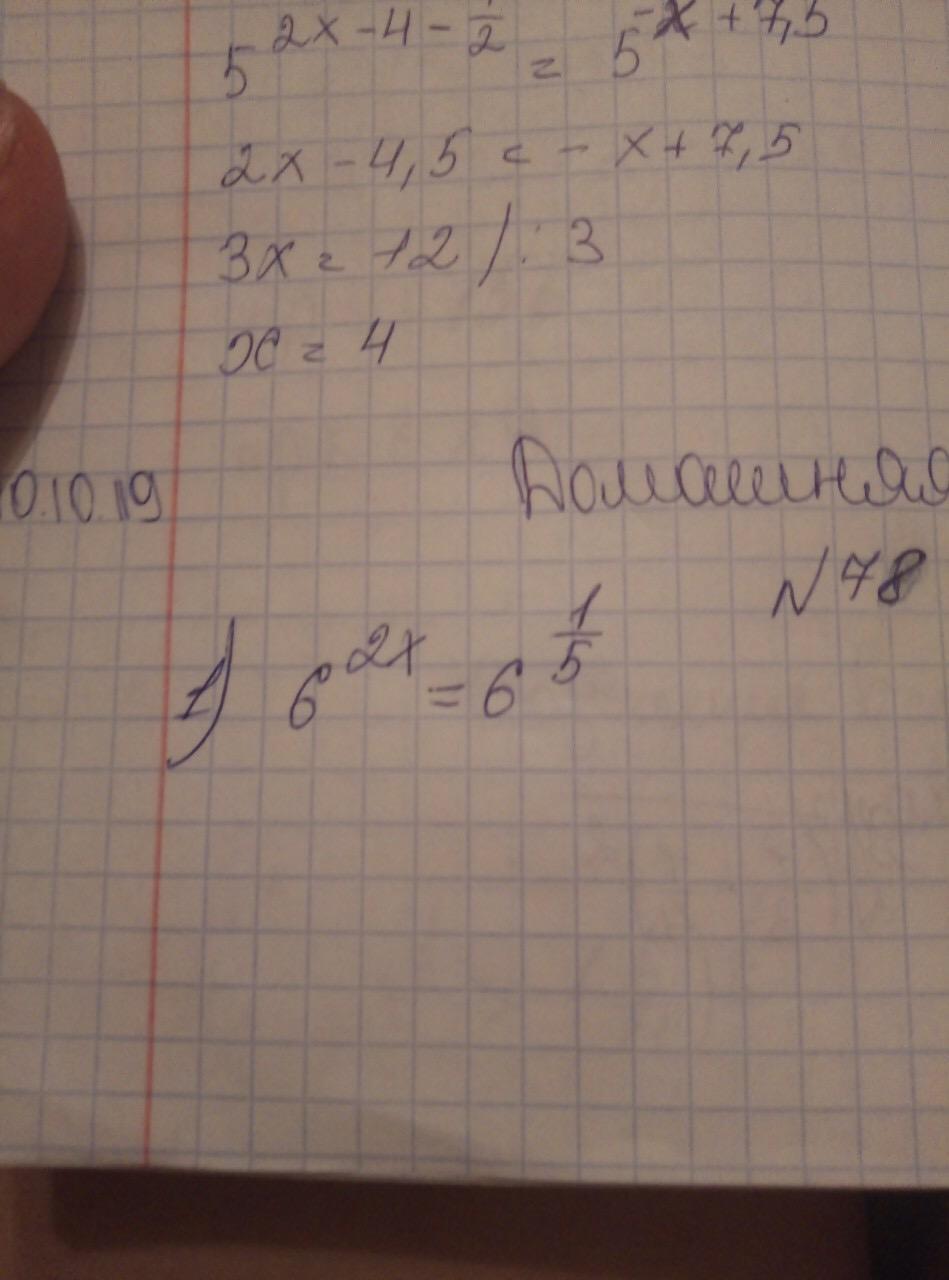 5^{2x-4-\frac{1}{2}} = 5^{-x+7,5}
2x - 4,5 = - x + 7,5
3x = 12 / : 3
x = 4
0.10.19 Домашняя
N 78
1) 6^{2x} = 6^{\frac{1}{5}}